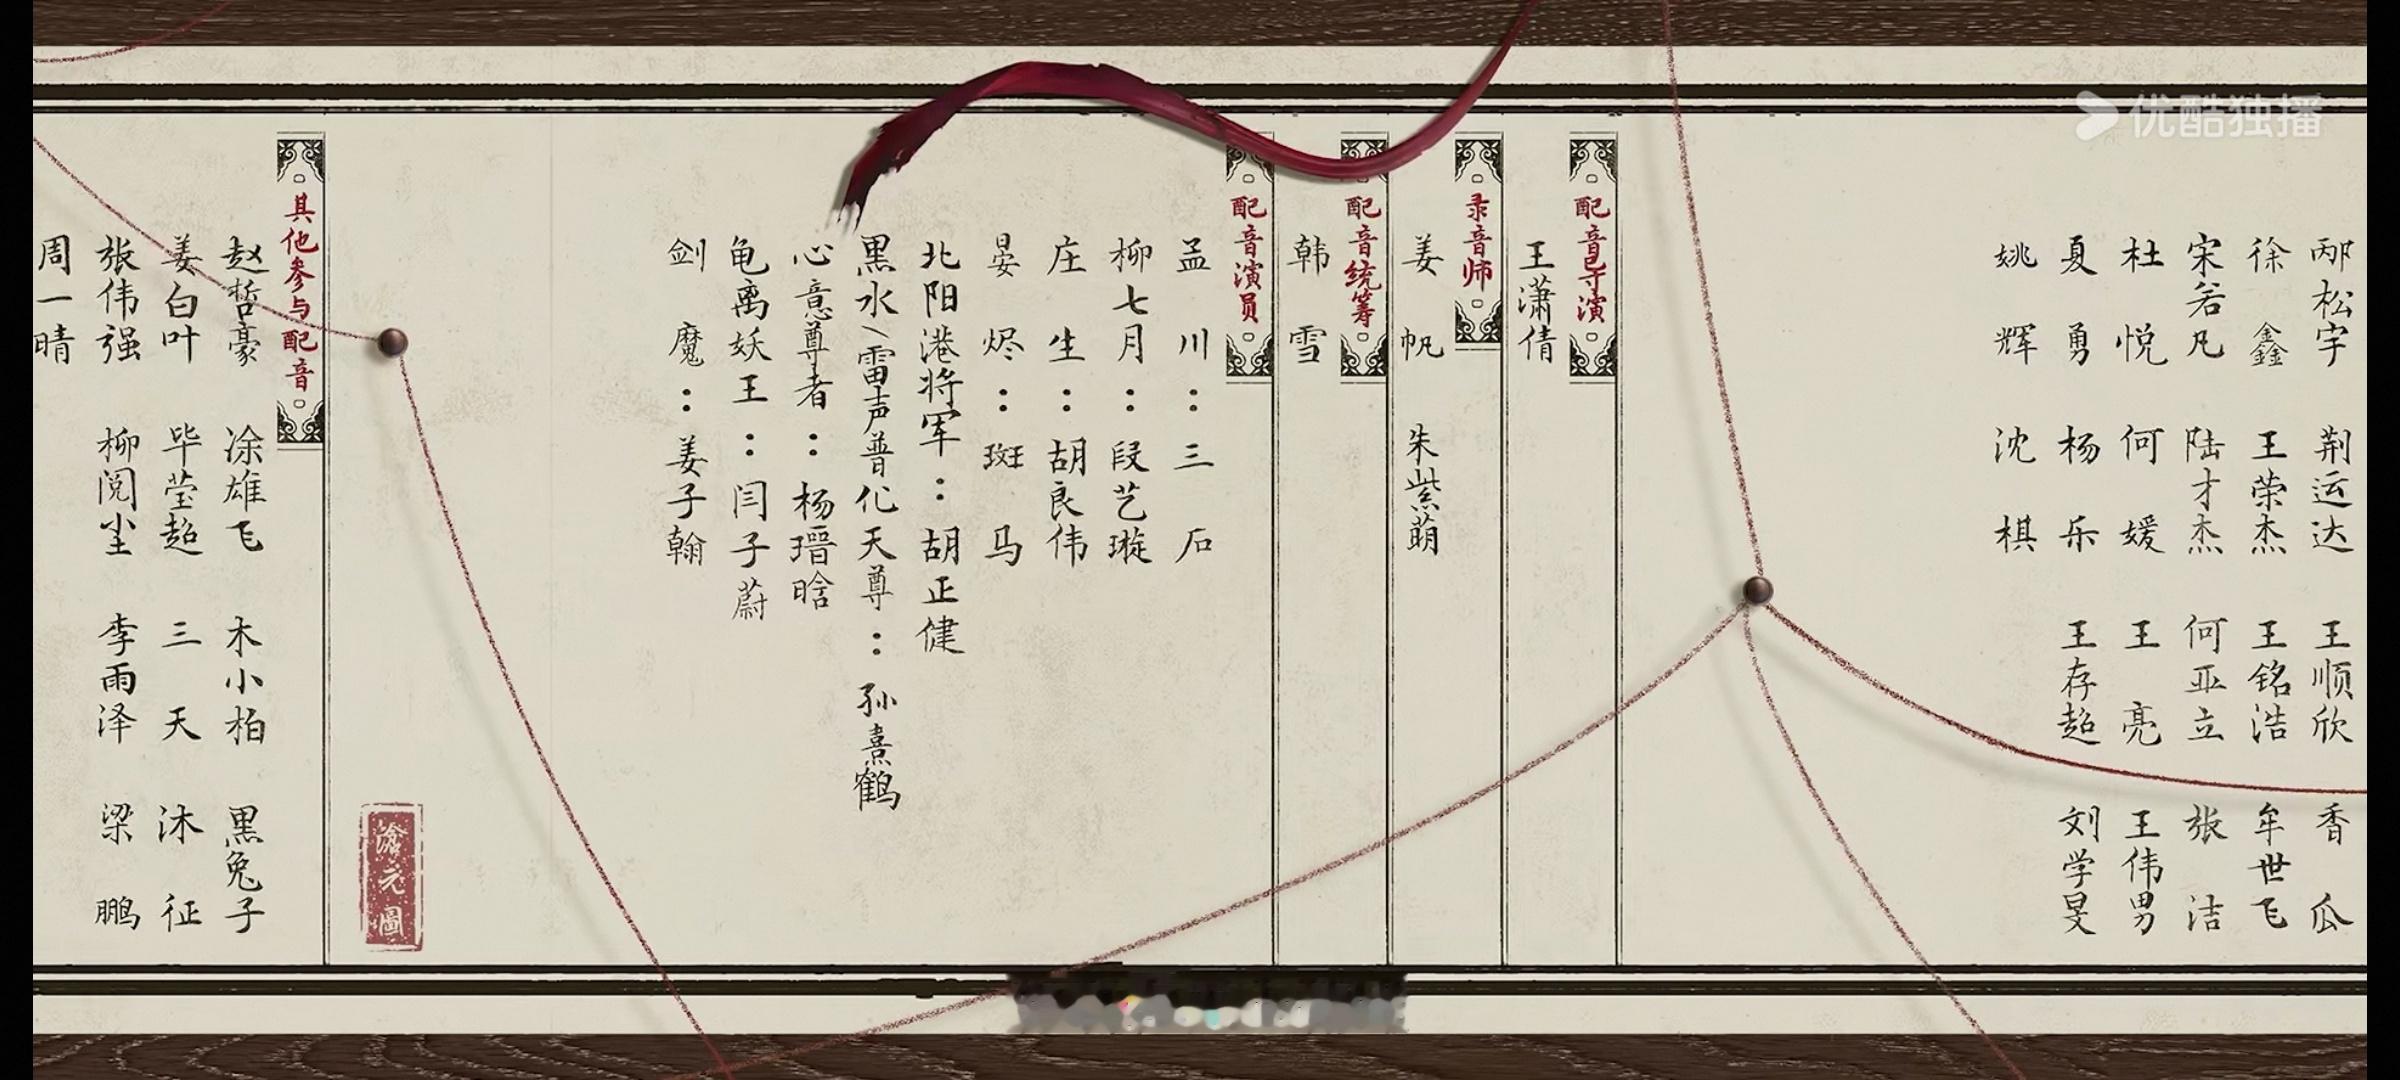 优酷独播
邴松宇 荆运达 王顺欣 香瓜
徐鑫 王荣杰 王铭浩 牟世飞
宋若凡 陆才杰 何亚立 张洁
杜悦 何媛 王亮 王伟男
夏勇 杨乐 王存超 刘学旻
姚辉 沈棋
配音导演
王潇倩
录音师
姜帆 朱紫萌
配音统筹
韩雪
配音演员
孟川：三石
柳七月：段艺璇
庄生：胡良伟
晏烬：斑马
北阳港将军：胡正健
黑水/雷声普化天尊：孙熹鹤
心意尊者：杨瑨晗
龟离妖王：闫子蔚
剑魔：姜子翰
滄元圖
其他参与配音
赵哲豪 涂雄飞 木小柏 黑兔子
姜白叶 毕莹超 三天 沐征
张伟强 柳阅尘 李雨泽 梁鹏
周一晴